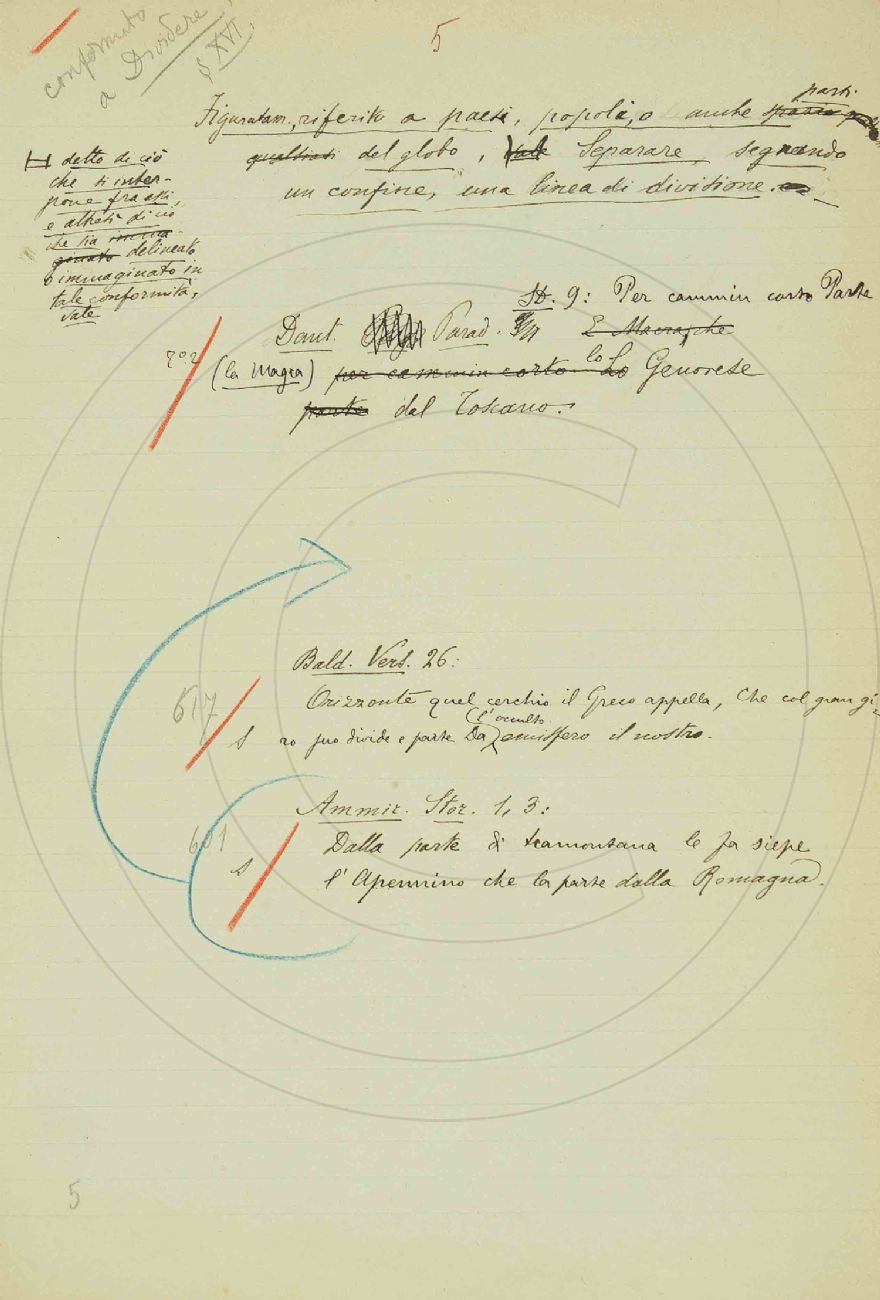 conformato
a Dividere
§ XVI.
5
Figuratam., riferito a paesi, popoli, o anche parti
qualsiasi del globo, Vale Separare, segnando
un confine, una linea di divisione.
detto di ciò
che si inter-
pone fra essi,
e altresì di ciò
che sia immma-
ginato delineato
o immaginato in
tale conformità,
vale
Dant. Parad. 9: Per cammin corto Parte
(la Magra) per cammin corto lo Genovese
parte dal Toscano.
Bald. Vers. 26:
617
Orizzonte quel cerchio il Greco appella, Che col gran gi-
S
ro suo divide e parte Da l'occulto emisfero il nostro.
Ammir. Stor. 1, 3:
601
Dalla parte di tramontana le fa siepe
S
l'Apennino che la parte dalla Romagna.
5